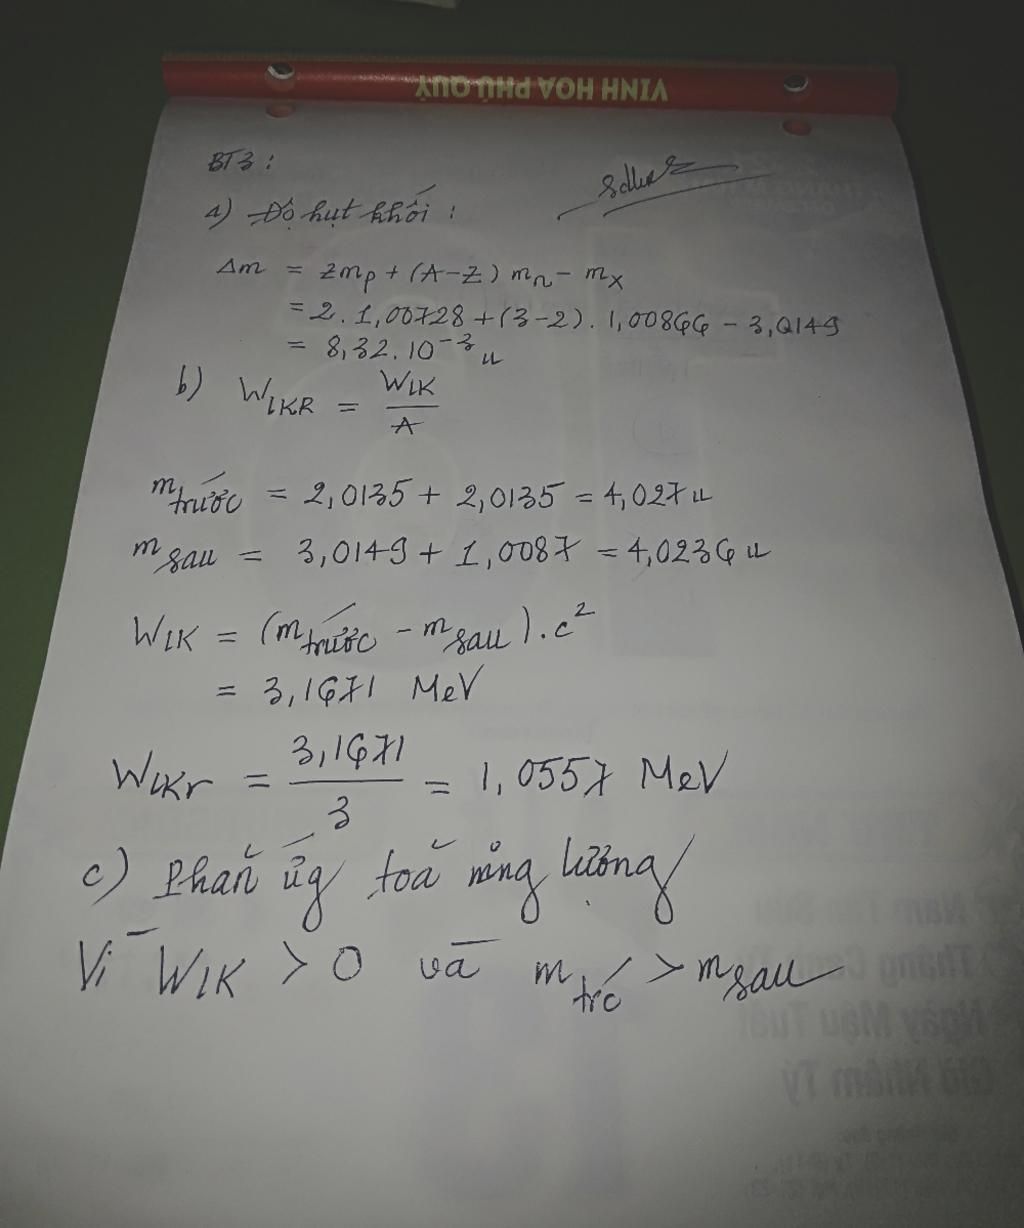 VINH HOA PHÚ QUÝ
BT3:
a) Độ hụt khối :
Δm = Zmp + (A-Z) mn - mx
= 2. 1,00728 + (3-2). 1,00866 - 3,0149
= 8,32.10⁻³ u
b) WLKR = WLK / A
m trước = 2,0135 + 2,0135 = 4,027 u
m sau = 3,0149 + 1,0087 = 4,0236 u
WLK = (m trước - m sau). c²
= 3,1671 MeV
WLKr = 3,1671 / 3 = 1,0557 MeV
c) Phản ứg toả năng lượng
Vì WLK > 0 và m trớc > m sau
Năm Tân Sửu
Ngày Mậu Tuất
Giờ Nhâm Tý